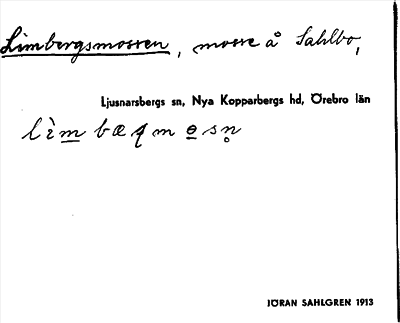 Limbergsmossen, mosse å Sahlbo,
Ljusnarsbergs sn, Nya Kopparbergs hd, Örebro län
lìm bæqmosn̥
JÖRAN SAHLGREN 1913